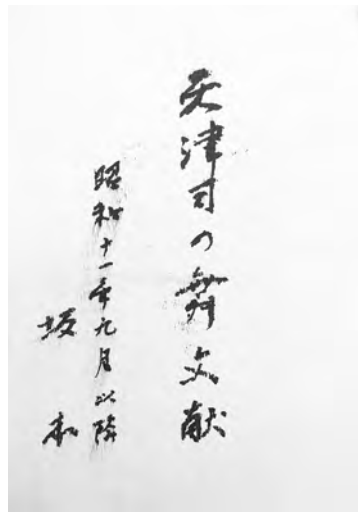 天津司の舞文献
昭和十一年九月以降
坂本